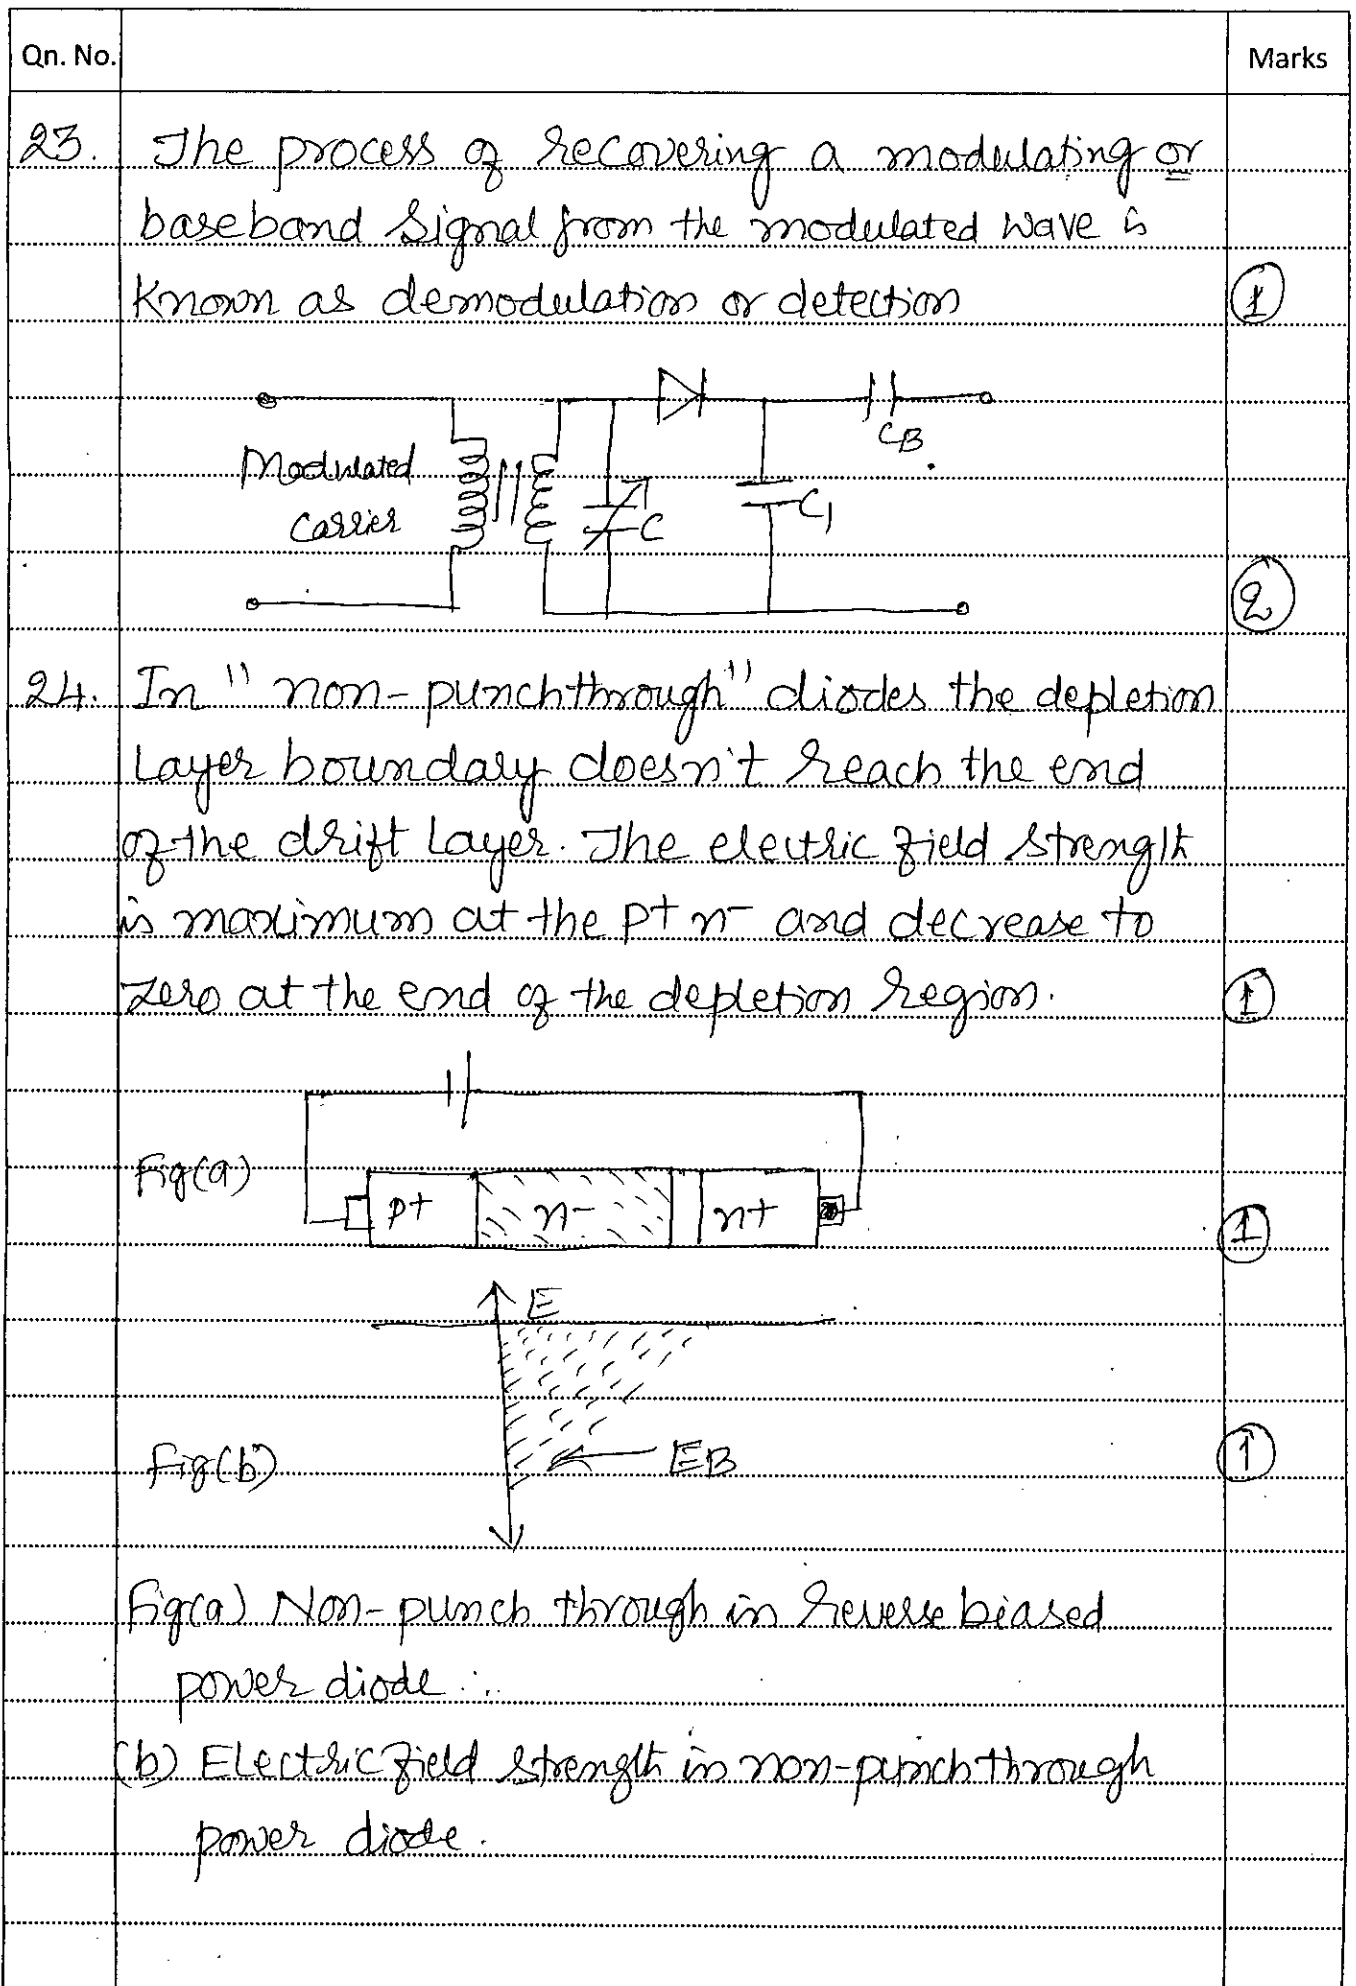 Qn. No. Marks
23. The process of recovering a modulating or
baseband signal from the modulated wave is
known as demodulation or detection 1
CB
Modulated
Carrier
C
C1
2
24. In "non-punchthrough" diodes the depletion
Layer boundary doesn't reach the end
of the drift Layer. The electric field strength
is maximum at the p+ n- and decrease to
zero at the end of the depletion region. 1
Fig(a)
p+ n- n+ 1
E
Fig(b) EB 1
Fig(a) Non-punch through in reverse biased
power diode
(b) Electric field strength in non-punch through
power diode.